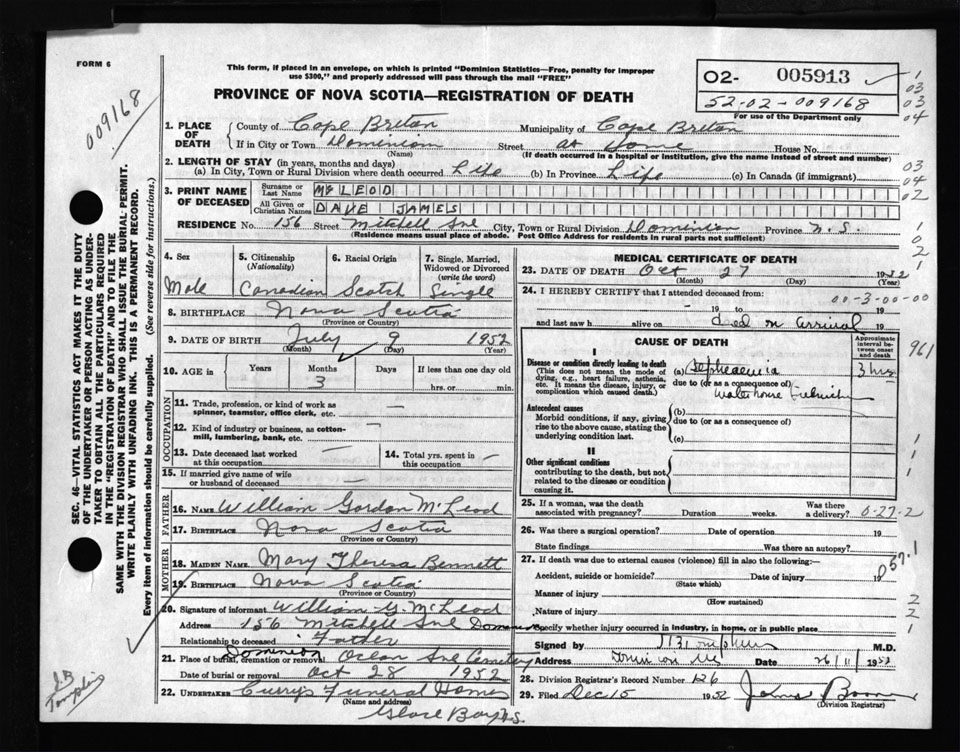 FORM 6
This form, if placed in an envelope, on which is printed "Dominion Statistics—Free, penalty for improper
use $300," and properly addressed will pass through the mail "FREE"
PROVINCE OF NOVA SCOTIA—REGISTRATION OF DEATH
02- 005913
52-02-009168
For use of the Department only
009168
SEC. 46—VITAL STATISTICS ACT MAKES IT THE DUTY
OF THE UNDERTAKER OR PERSON ACTING AS UNDER-
TAKER TO OBTAIN ALL THE PARTICULARS REQUIRED
IN THE "REGISTRATION OF DEATH" AND TO FILE THE
SAME WITH THE DIVISION REGISTRAR WHO SHALL ISSUE THE BURIAL PERMIT.
WRITE PLAINLY WITH UNFADING INK. THIS IS A PERMANENT RECORD.
Every item of information should be carefully supplied. (See reverse side for instructions.)
1. PLACE OF DEATH
County of Cape Breton Municipality of Cape Breton
If in City or Town Dominion Street at Home House No.
(Name) (If death occurred in a hospital or institution, give the name instead of street and number)
2. LENGTH OF STAY (in years, months and days)
(a) In City, Town or Rural Division where death occurred Life (b) In Province Life (c) In Canada (if immigrant)
3. PRINT NAME OF DECEASED
Surname or Last Name McLEOD
All Given or Christian Names DAVE JAMES
RESIDENCE No. 156 Street Mitchell Ave City, Town or Rural Division Dominion Province N.S.
(Residence means usual place of abode. Post Office Address for residents in rural parts not sufficient)
4. Sex
Male
5. Citizenship (Nationality)
Canadian
6. Racial Origin
Scotch
7. Single, Married, Widowed or Divorced (write the word)
Single
8. BIRTHPLACE Nova Scotia
(Province or Country)
9. DATE OF BIRTH July 9 1952
(Month) (Day) (Year)
10. AGE in Years Months Days If less than one day
3 hrs. or min.
OCCUPATION
11. Trade, profession, or kind of work as
spinner, teamster, office clerk, etc. —
12. Kind of industry or business, as cotton-
mill, lumbering, bank, etc. —
13. Date deceased last worked
at this occupation —
14. Total yrs. spent in
this occupation —
15. If married give name of wife
or husband of deceased —
FATHER
16. NAME William Gordon McLeod
17. BIRTHPLACE Nova Scotia
(Province or Country)
MOTHER
18. MAIDEN NAME Mary Theresa Bennett
19. BIRTHPLACE Nova Scotia
(Province or Country)
20. Signature of informant William G. McLeod
Address 156 Mitchell Ave Dominion
Relationship to deceased Father
21. Place of burial, cremation or removal Dominion Ocean Ave Cemetery
Date of burial or removal Oct 28 1952
22. UNDERTAKER Curry's Funeral Home
(Name and address)
Glace Bay N.S.
MEDICAL CERTIFICATE OF DEATH
23. DATE OF DEATH Oct 27 1952
(Month) (Day)
24. I HEREBY CERTIFY that I attended deceased from:
00-3-00-00
19 to 19
and last saw h alive on died on arrival 19
CAUSE OF DEATH
Approximate interval between onset and death
I
Disease or condition directly leading to death
(This does not mean the mode of
dying, e.g., heart failure, asthenia,
etc. It means the disease, injury, or
complication which caused death.)
(a) 3 hrs
due to (or as a consequence of)
Antecedent causes
Morbid conditions, if any, giving
rise to the above cause, stating the
underlying condition last.
(b)
due to (or as a consequence of)
(c)
II
Other significant conditions
contributing to the death, but not
related to the disease or condition
causing it.
25. If a woman, was the death
associated with pregnancy? Duration weeks. Was there a delivery? 0-27-2
26. Was there a surgical operation? Date of operation 19
State findings Was there an autopsy?
27. If death was due to external causes (violence) fill in also the following:
Accident, suicide or homicide? Date of injury 19
(State which)
Manner of injury
(How sustained)
Nature of injury
Specify whether injury occurred in industry, in home, or in public place
Signed by M.D.
Address Dominion NS Date 26/11/1952
28. Division Registrar's Record Number 126
29. Filed Dec 15 1952
(Division Registrar)
961